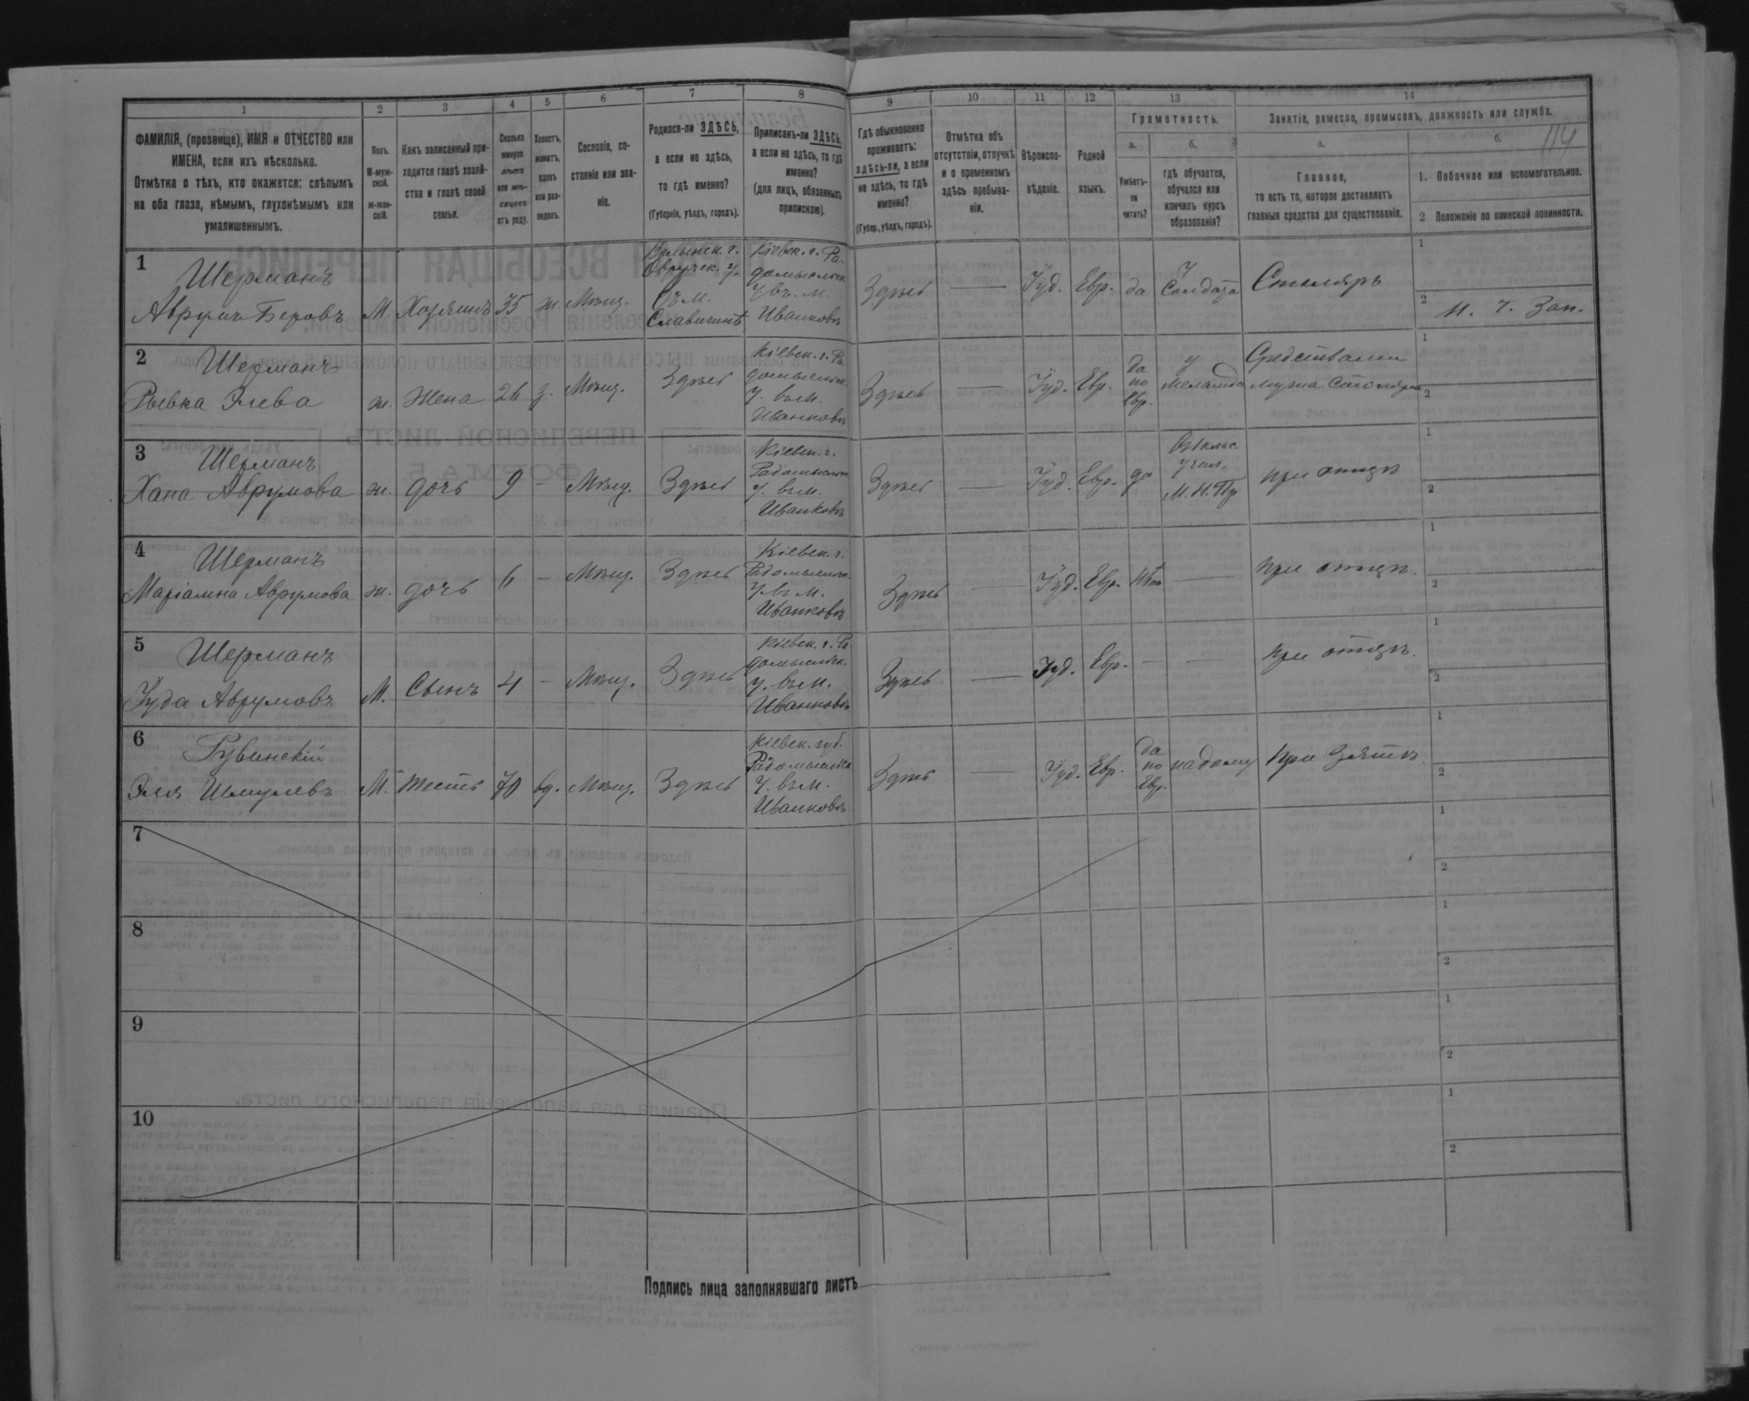 1 2 3 4 5 6 7 8 9 10 11 12 13 14
ФАМИЛІЯ, (прозвище), ИМЯ и ОТЧЕСТВО или
ИМЕНА, если ихъ нѣсколько.
Отмѣтка о тѣхъ, кто окажется: слѣпымъ
на оба глаза, нѣмымъ, глухонѣмымъ или
умалишеннымъ.
Полъ.
М-муж-
ской.
Ж-жен-
скій.
Какъ записанный при-
ходится главѣ хозяй-
ства и главѣ своей
семьи.
Сколько
минуло
лѣтъ
или мѣ-
сяцевъ
отъ роду.
Холостъ,
женатъ,
вдовъ
или раз-
веденъ.
Сословіе, со-
стояніе или зва-
ніе.
Родился-ли ЗДѢСЬ,
а если не здѣсь,
то гдѣ именно?
(Губернія, уѣздъ, городъ).
Приписанъ-ли ЗДѢСЬ,
а если не здѣсь, то гдѣ
именно?
(для лицъ, обязанныхъ
припискою).
Гдѣ обыкновенно
проживаетъ:
здѣсь-ли, а если
не здѣсь, то гдѣ
именно?
(Губер., уѣздъ, городъ).
Отмѣтка объ
отсутствіи, отлучкѣ
и о временномъ
здѣсь пребыва-
ніи.
Вѣроиспо-
вѣданіе.
Родной
языкъ.
Грамотность.
а.
Умѣетъ-
ли
читать?
б.
гдѣ обучается,
обучался или
кончилъ курсъ
образованія?
Занятіе, ремесло, промыселъ, должность или служба.
а.
Главное,
то есть то, которое доставляетъ
главныя средства для существованія.
б.
114
1. Побочное или вспомогательное.
2 Положеніе по воинской повинности.
1 Шерманъ
Аврумъ Беровъ М. Хозяинъ 35 ж Мѣщ.
Волынск. г.
Овручск. у.
въ м.
Славичнѣ
Кіевск. г. Ра-
домысльск.
У въ. м.
Иванковъ
Здѣсь — Іуд. Евр. да
У
Солдата
Столяръ
1
2 И. Ч. Зап.
2 Шерманъ
Рывка Элева ж. Жена 26 з. Мѣщ. Здѣсь
Кіевск. г. Ра
домысльск.
У. въ м.
Иванковъ
Здѣсь — Іуд. Евр.
да
по
Евр.
У
меламда
Средствами
мужа столяра
1
2
3 Шерманъ
Хана Аврумова ж. дочь 9 - Мѣщ. Здѣсь
Кіевск. г.
Радомысльск
У. въ м.
Иванковъ
Здѣсь — Іуд. Евр. да
учил.
при отцѣ
1
2
4 Шерманъ
Маріамна Аврумова ж. дочь 6 — Мѣщ. Здѣсь
Кіевск. г.
Радомысльск.
У. въ м.
Иванковъ
Здѣсь — Іуд. Евр. нѣт —
при отцѣ
1
2
5 Шерманъ
Іуда Аврумовъ М. Сынъ 4 — Мѣщ. Здѣсь
Кіевск. г. Ра
домысльск.
У. въ м.
Иванковъ
Здѣсь — Іуд. Евр. — —
при отцѣ.
1
2
6 Рувинскій
Эля Шмулевъ М. тесть 70 вд. Мѣщ. Здѣсь
Кіевск. губ.
Радомысльск
У. въ м.
Иванковъ
Здѣсь — Іуд. Евр.
да
по
Евр.
на дому при зятѣ
1
2
7
1
2
8
1
2
9
1
2
10
1
2
Подпись лица заполнявшаго листъ